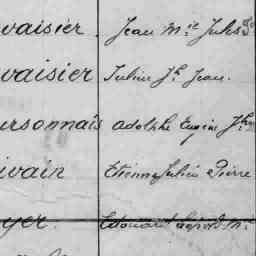 vaisier. Jean M.ie Jules
vaisier Julien J.h Jean.
ursonnais adolphe Eugène J.h
ivain Etienne Julien Pierre
yer. Edouard Léopold M.